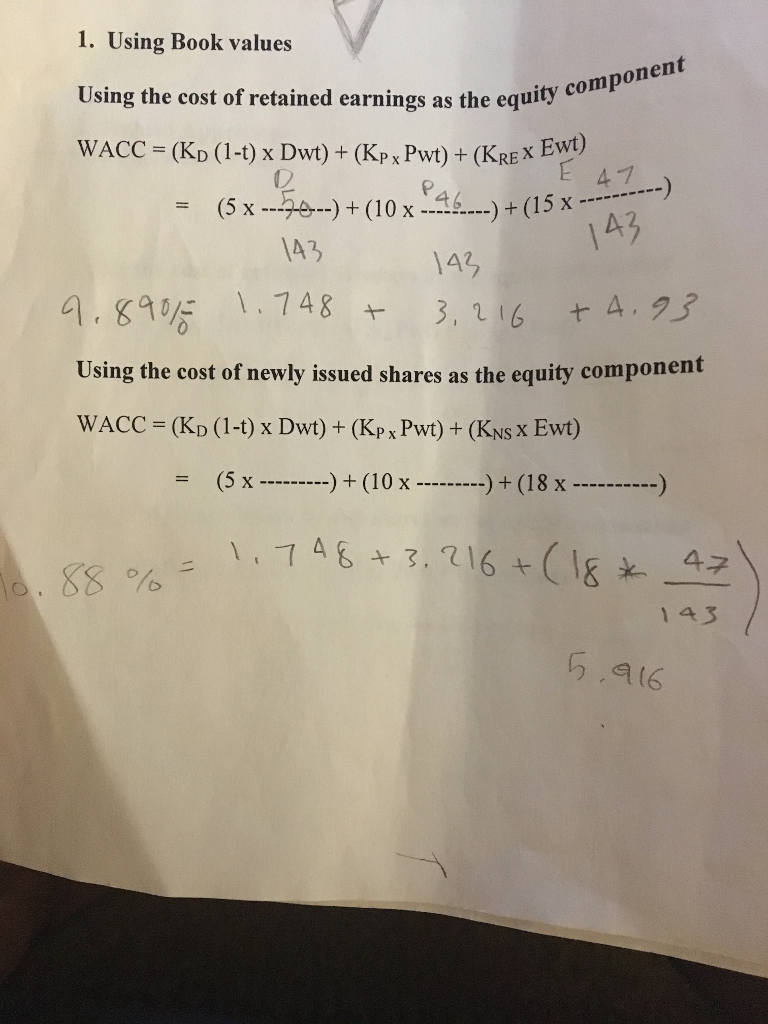 1. Using Book values
Using the cost of retained earnings as the equity component
WACC = (KD (1-t) x Dwt) + (KP x Pwt) + (KRE x Ewt)
D P E
50 46 47
= (5 x ---------) + (10 x ---------) + (15 x ----------)
143 143 143
9.89% 1.748 + 3.216 + 4.93
Using the cost of newly issued shares as the equity component
WACC = (KD (1-t) x Dwt) + (KP x Pwt) + (KNS x Ewt)
= (5 x ---------) + (10 x ---------) + (18 x ----------)
10.88 % = 1.748 + 3.216 + (18 * 47
143)
5.916